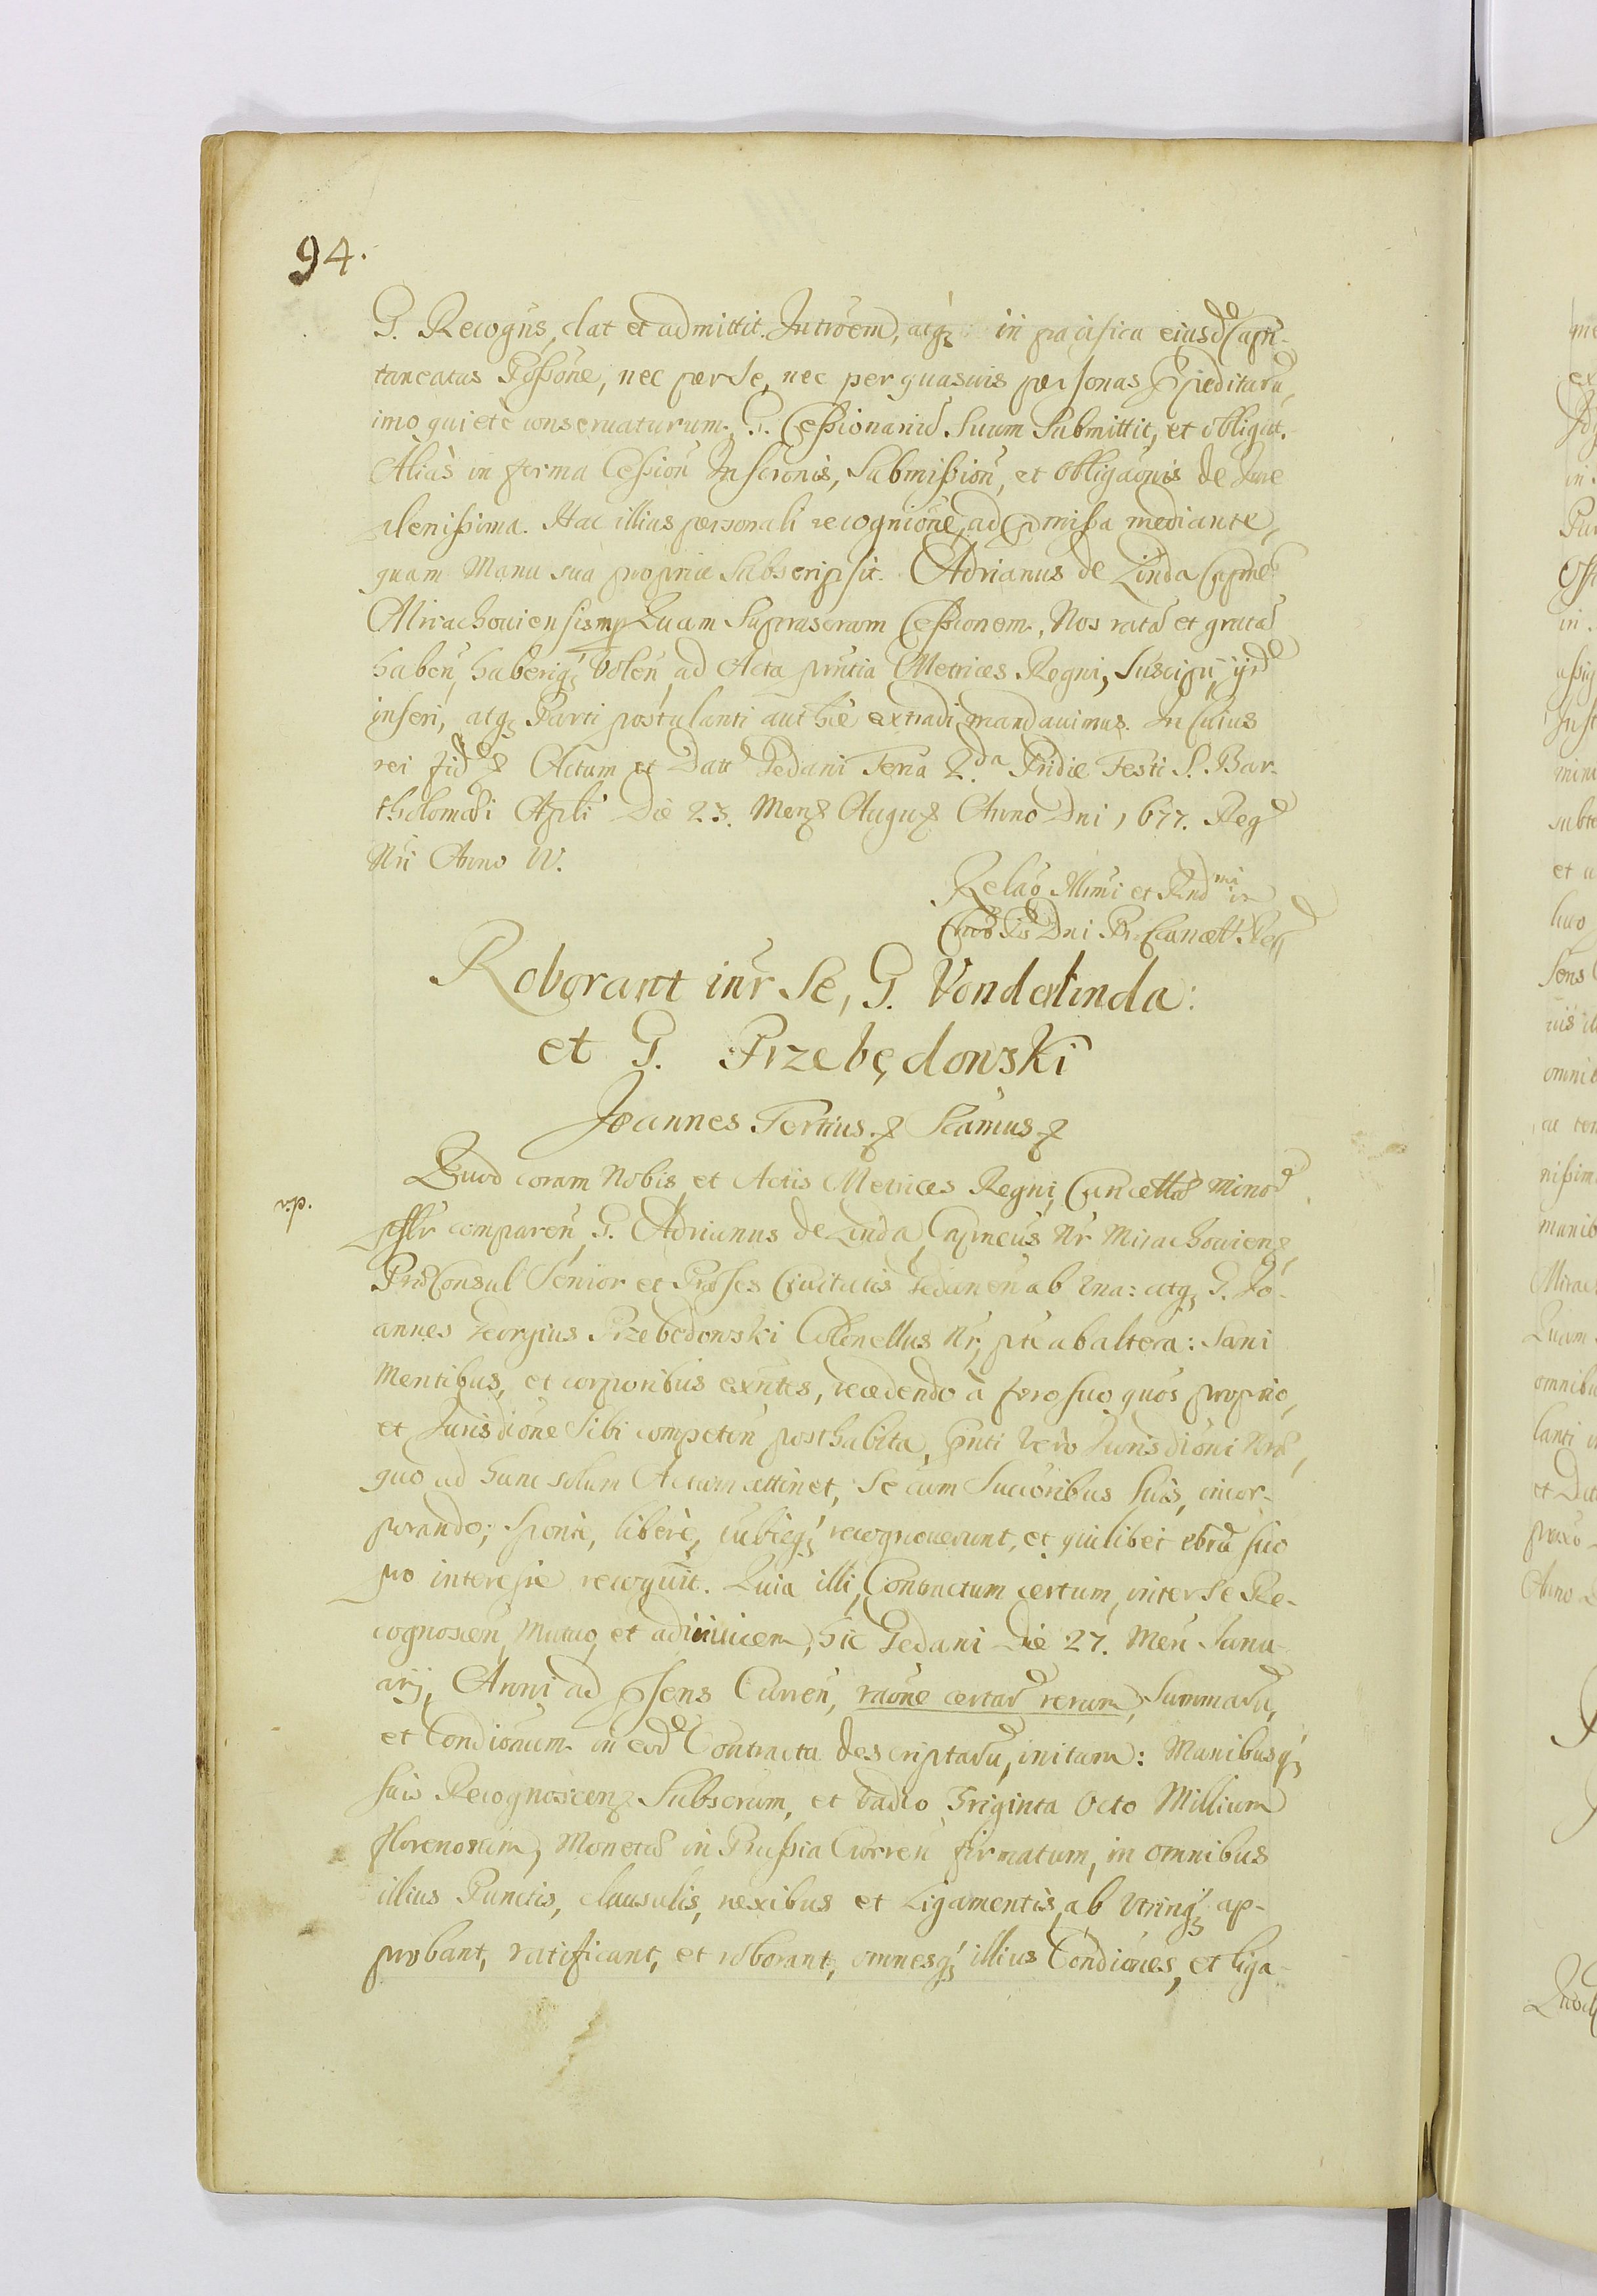 94.
G. Recogns, dat et admittit Introem, atq in pacifica eiusd Capi-
taneatus Possone, nec per se, nec per quasuis personas Præpeditaru,
imo quietè conseruaturum. G. Cessionariu Suum Submittit, et obligat.
Aliàs in forma Cession Inscronis, Submission, et obligaonis de Iure
plenissima. Hac illius personali recognione, ad præmissa mediante,
quam Manu sua propria Subscripsit. Adrianus de Linda Cppneus
Mirachouiensis mp Quam Suprascram Cessionem, Nos rata et grata
haben, haberiq volen, ad Acta prntia Metrices Regni, Suscipi, ijsd
inseri, atq Parti postulanti authe extradi mandauimus. In Cuius
rei fid Actum et Datt Gedani Feria 2.da Pridie Festi S. Bar-
tholomæi Apli Die 23. Mens Augu Anno Dni 1677. Reg
Nri Anno IV.
Relao Illmi et Rndmi in
Chro Pris Dni ProCancell. Reg
Roborant intr Se, G. Vonderlinda:
et G. Przebędowski
Joannes Tertius. Scamus.
Quod coram Nobis, et Actis Metrices Regni, Cancellæ minor
psltr comparen, G. Adrianus de Linda, Cppneus Nr Mirachouien,
ProConsul Senior et Præses Ciuitatis Gedanen ab una: atq G. Jo-
annes Georgius Przebędowski Colonellus Nr, pte ab altera: Sani
Mentibus, et corporibus exntes, recedendo à foro suo quos proprio,
et Jurisdione Sibi competen posthabita, prnti vero Jurisdioni Nræ,
quo ad hunc solum Actum attinet, Se cum Succoribus Suis, incor-
porando; Sponte, liberè, lubieq recognouerunt, et quilibet eoru suo
pro interesse recoguit. Quia illi, Contractum certum, inter Se Re-
cognoscen, Mutuo, et adiuuicem, hic Gedani Die 27. Men Janu-
arij, Anni ad præsens Curren, raone certar rerum, Summaru,
et Condionum in eod Contracta descriptaru, initum: Manibusq
suis Recognoscen Subscrum, et Vadio Triginta Octo Millium
florenorum, Monetæ in Prussia Curren firmatum, in omnibus
illius Punctis, Clausulis, nexibus et Ligamentis, ab Vtrinq ap-
probant, ratificant, et roborant, omnesq illius Condiones, et liga-